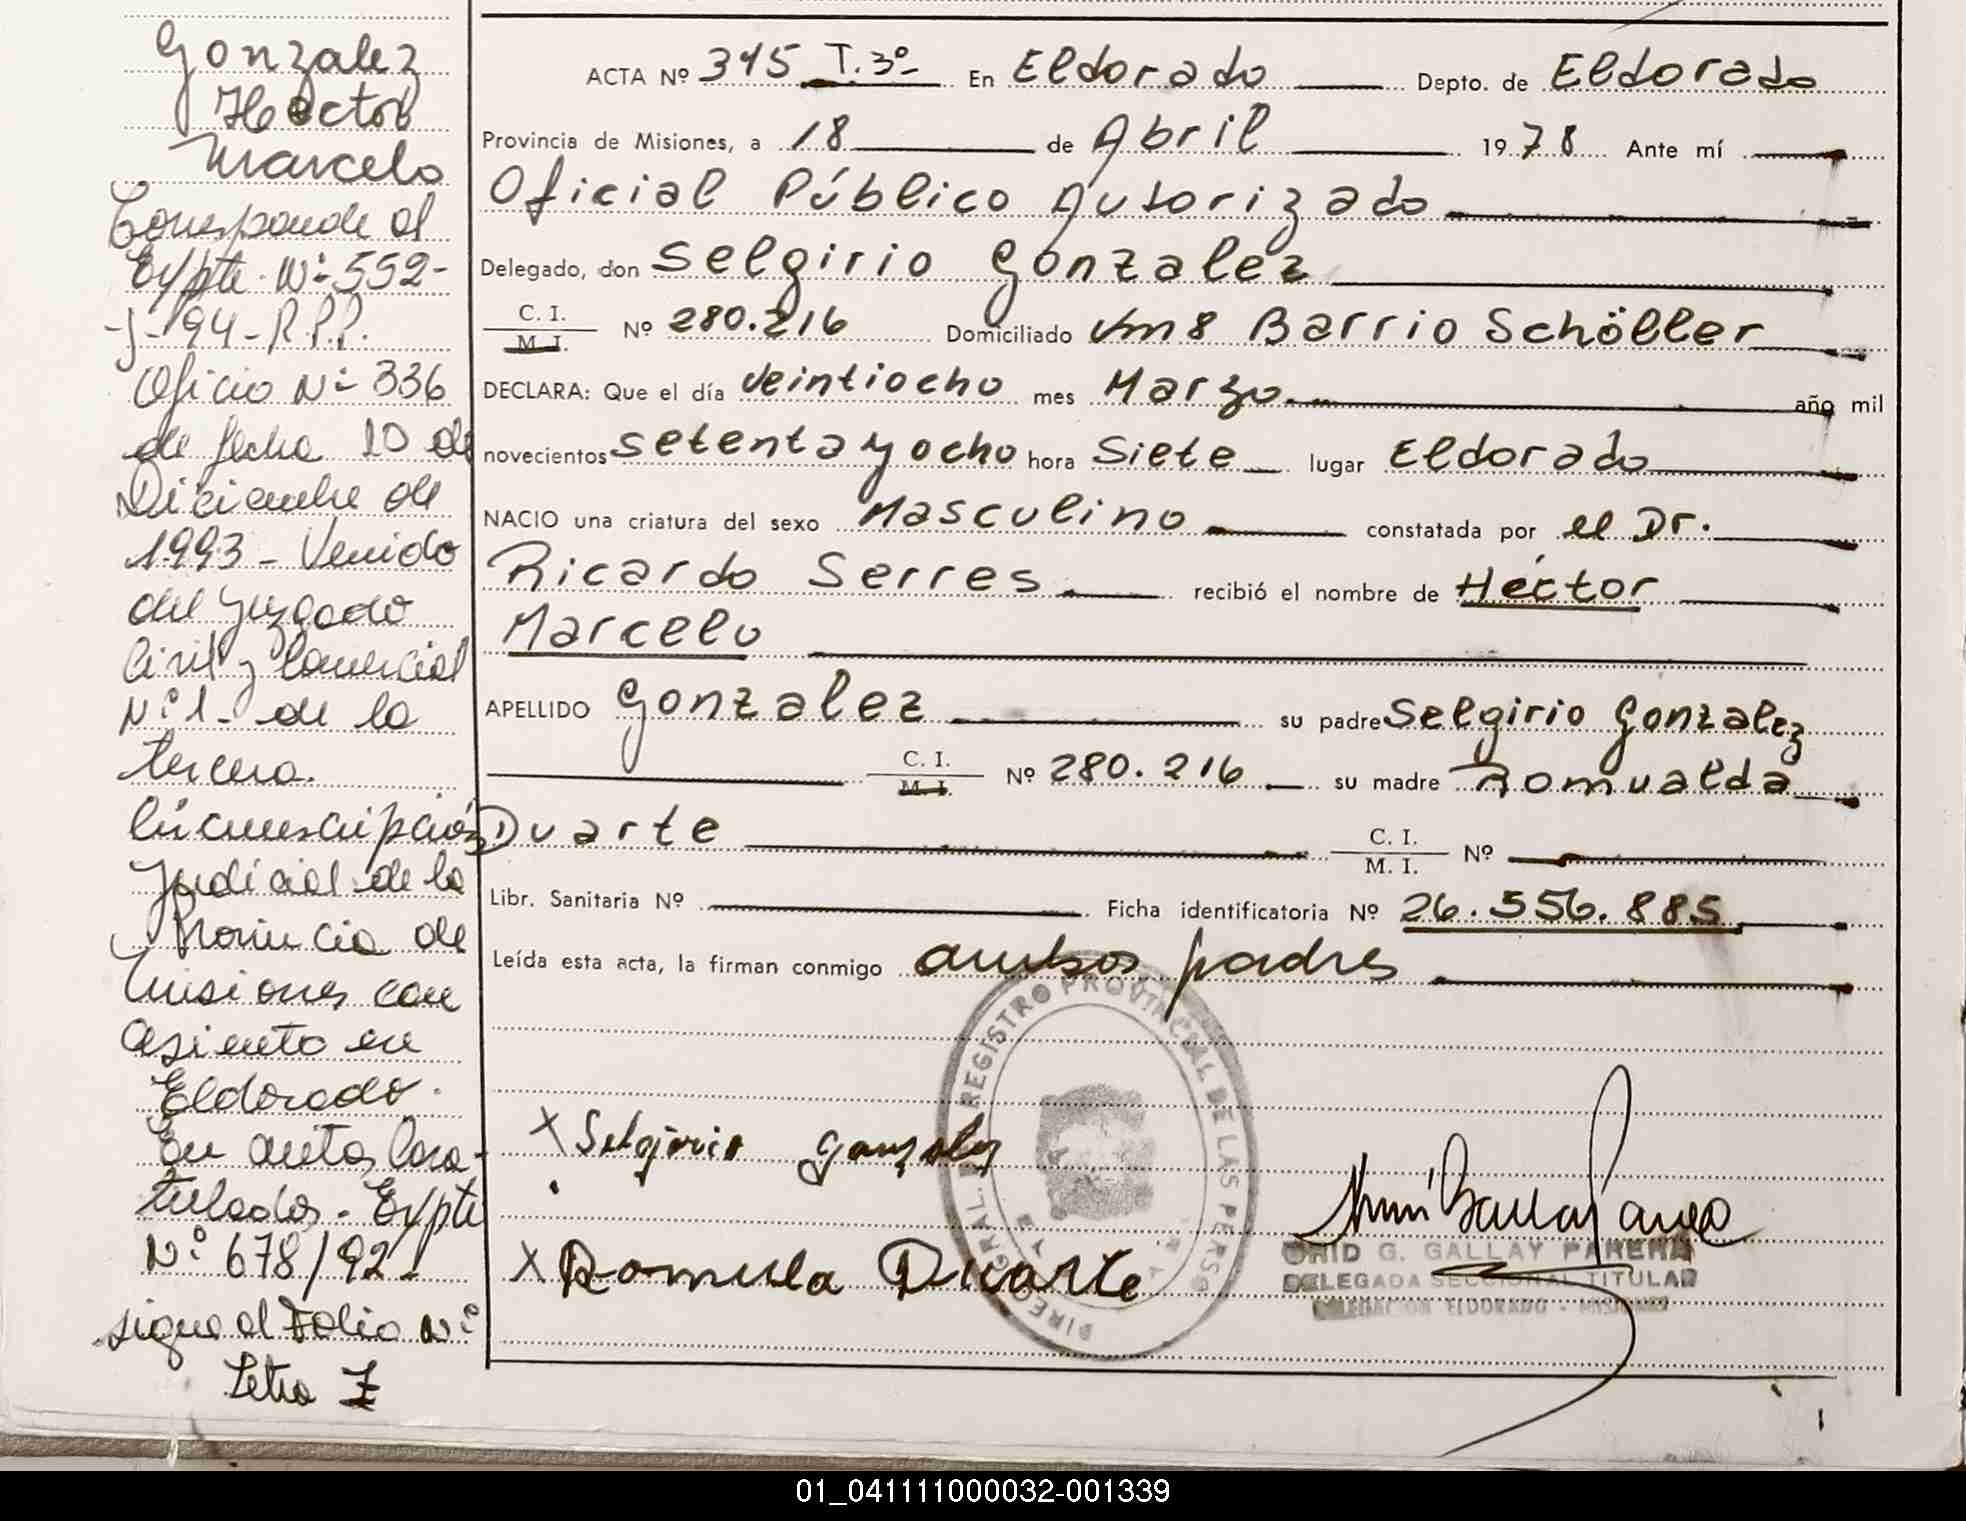 Gonzalez
Hector
Marcelo
Corresponde al
Expte. Nº 552-
J-94-R.P.P.
Oficio Nº 336
de fecha 10 de
Diciembre de
1993 - Venido
del Juzgado
Civil y Comercial
Nº 1 - de la
tercera.
Circunscripción
Judicial de la
Provincia de
Misiones con
asiento en
Eldorado.
En autos Cara-
tulados - Expte
Nº 678/92-
sigue al Folio Nº
Letra Z
ACTA Nº 345 T.3º- En Eldorado Depto. de Eldorado
Provincia de Misiones, a 18 de Abril 1978 Ante mí
Oficial Público Autorizado
Delegado, don Selgirio Gonzalez
C. I.
M. I. Nº 280.216 Domiciliado Km8 Barrio Schöller
DECLARA: Que el día veintiocho mes Marzo año mil
novecientos setenta y ocho hora Siete lugar Eldorado
NACIO una criatura del sexo Masculino constatada por el Dr.
Ricardo Serres recibió el nombre de Héctor
Marcelo
APELLIDO Gonzalez su padre Selgirio Gonzalez
C. I.
M. I. Nº 280.216 su madre Romualda
Duarte C. I.
M. I. Nº
Libr. Sanitaria Nº Ficha identificatoria Nº 26.556.885
Leída esta acta, la firman conmigo ambos padres
DIREC GRAL. DEL REGISTRO PROVINCIAL DE LAS PERSO
X Selgirio Gonzalez
X Romula Duarte
G. GALLAY PARERA
DELEGADA SECCIONAL TITULAR
DELEGACION ELDORADO - MISIONES
01_041111000032-001339